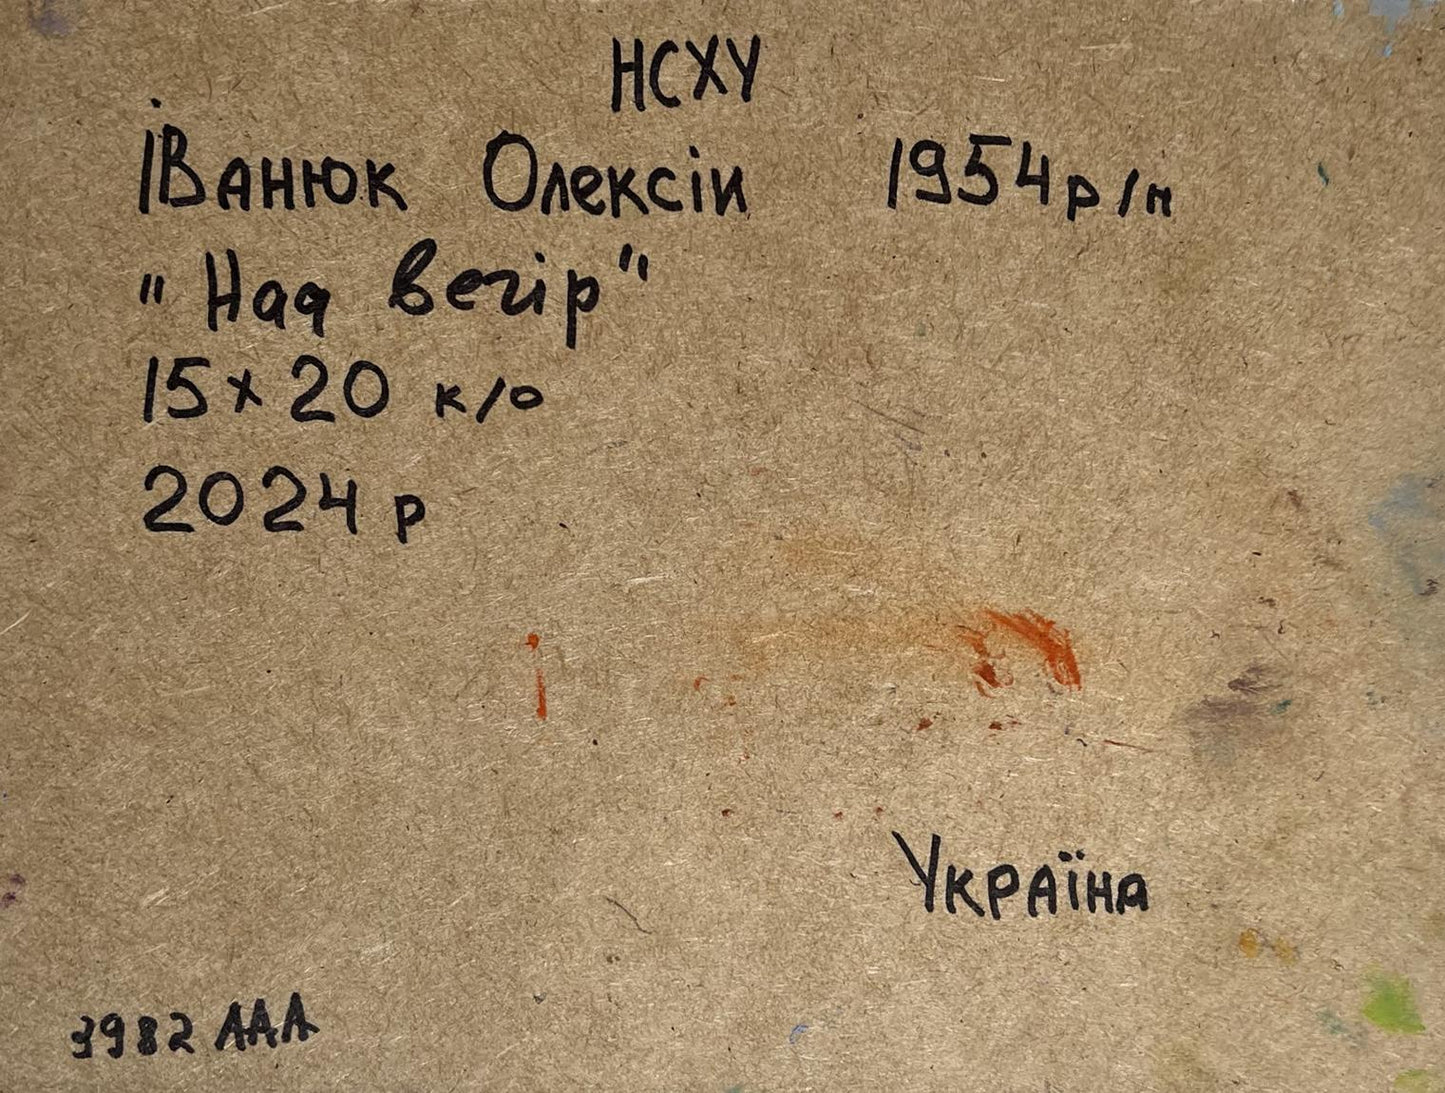 НСХУ
Іванюк Олексіи 1954 р/н
"Над вечір"
15x20 к/о
2024 р
Україна
3982 ААА